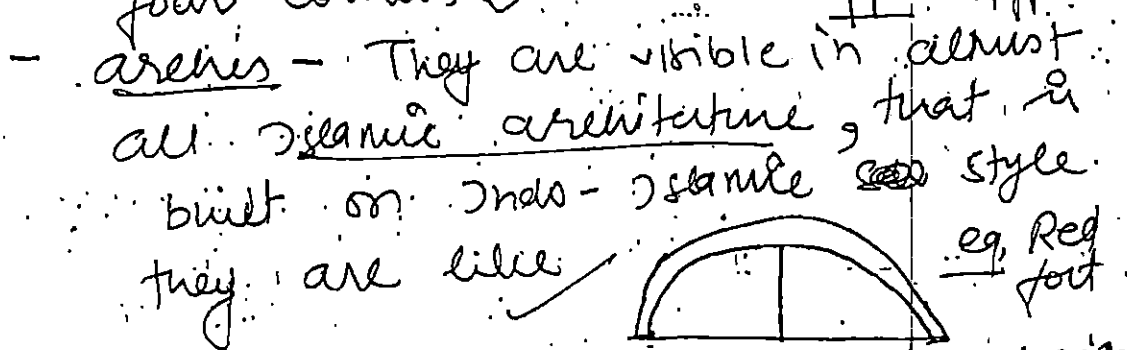 four corners
- arches - They are visible in almost
all Islamic architature, that is
built on Indo-Islamic style.
they are like
eg, Red
fort